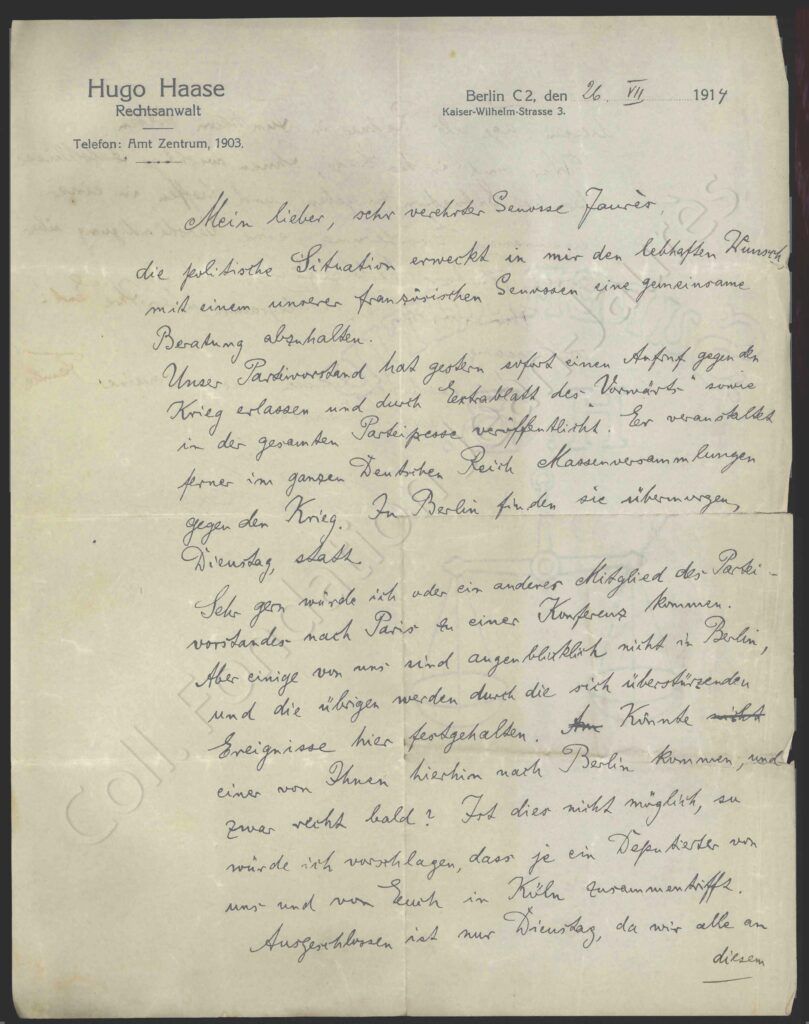 Hugo Haase
Rechtsanwalt
Telefon: Amt Zentrum, 1903.
Berlin C 2, den 26. VII 1914
Kaiser-Wilhelm-Strasse 3.
Mein lieber, sehr verehrter Genosse Jaurès,
die politische Situation erweckt in mir den lebhaften Wunsch,
mit einem unserer französischen Genossen eine gemeinsame
Beratung abzuhalten.
Unser Parteivorstand hat gestern sofort einen Aufruf gegen den
Krieg erlassen und durch Extrablatt des „Vorwärts" sowie
in der gesamten Parteipresse veröffentlicht. Er veranstaltet
ferner im ganzen Deutschen Reich Massenversammlungen
gegen den Krieg. In Berlin finden sie übermorgen,
Dienstag, statt.
Sehr gern würde ich oder ein anderes Mitglied des Partei-
vorstandes nach Paris zu einer Konferenz kommen.
Aber einige von uns sind augenblicklich nicht in Berlin,
und die übrigen werden durch die sich überstürzenden
Ereignisse hier festgehalten. Am Könnte nicht
einer von Ihnen hierhin nach Berlin kommen, und
zwar recht bald? Ist dies nicht möglich, so
würde ich vorschlagen, dass je ein Deputierter von
uns und von Euch in Köln zusammentrifft.
Ausgeschlossen ist nur Dienstag, da wir alle an
diesem
Coll. Fondation